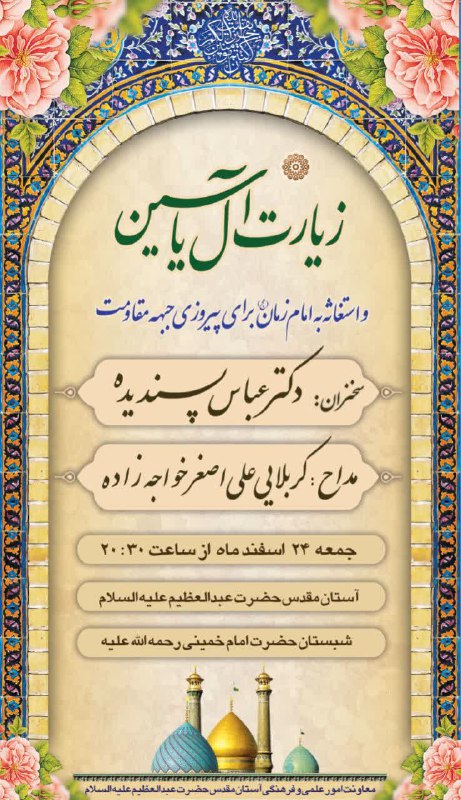 زیارت آل یاسین
و استغاثه به امام زمان (ع) برای پیروزی جبهه مقاومت
سخنران: دکتر عباس پسندیده
مداح: کربلایی علی اصغر خواجه زاده
جمعه ۲۴ اسفند ماه از ساعت ۲۰:۳۰
آستان مقدس حضرت عبدالعظیم علیه السلام
شبستان حضرت امام خمینی رحمه الله علیه
معاونت امور علمی و فرهنگی آستان مقدس حضرت عبدالعظیم علیه السلام